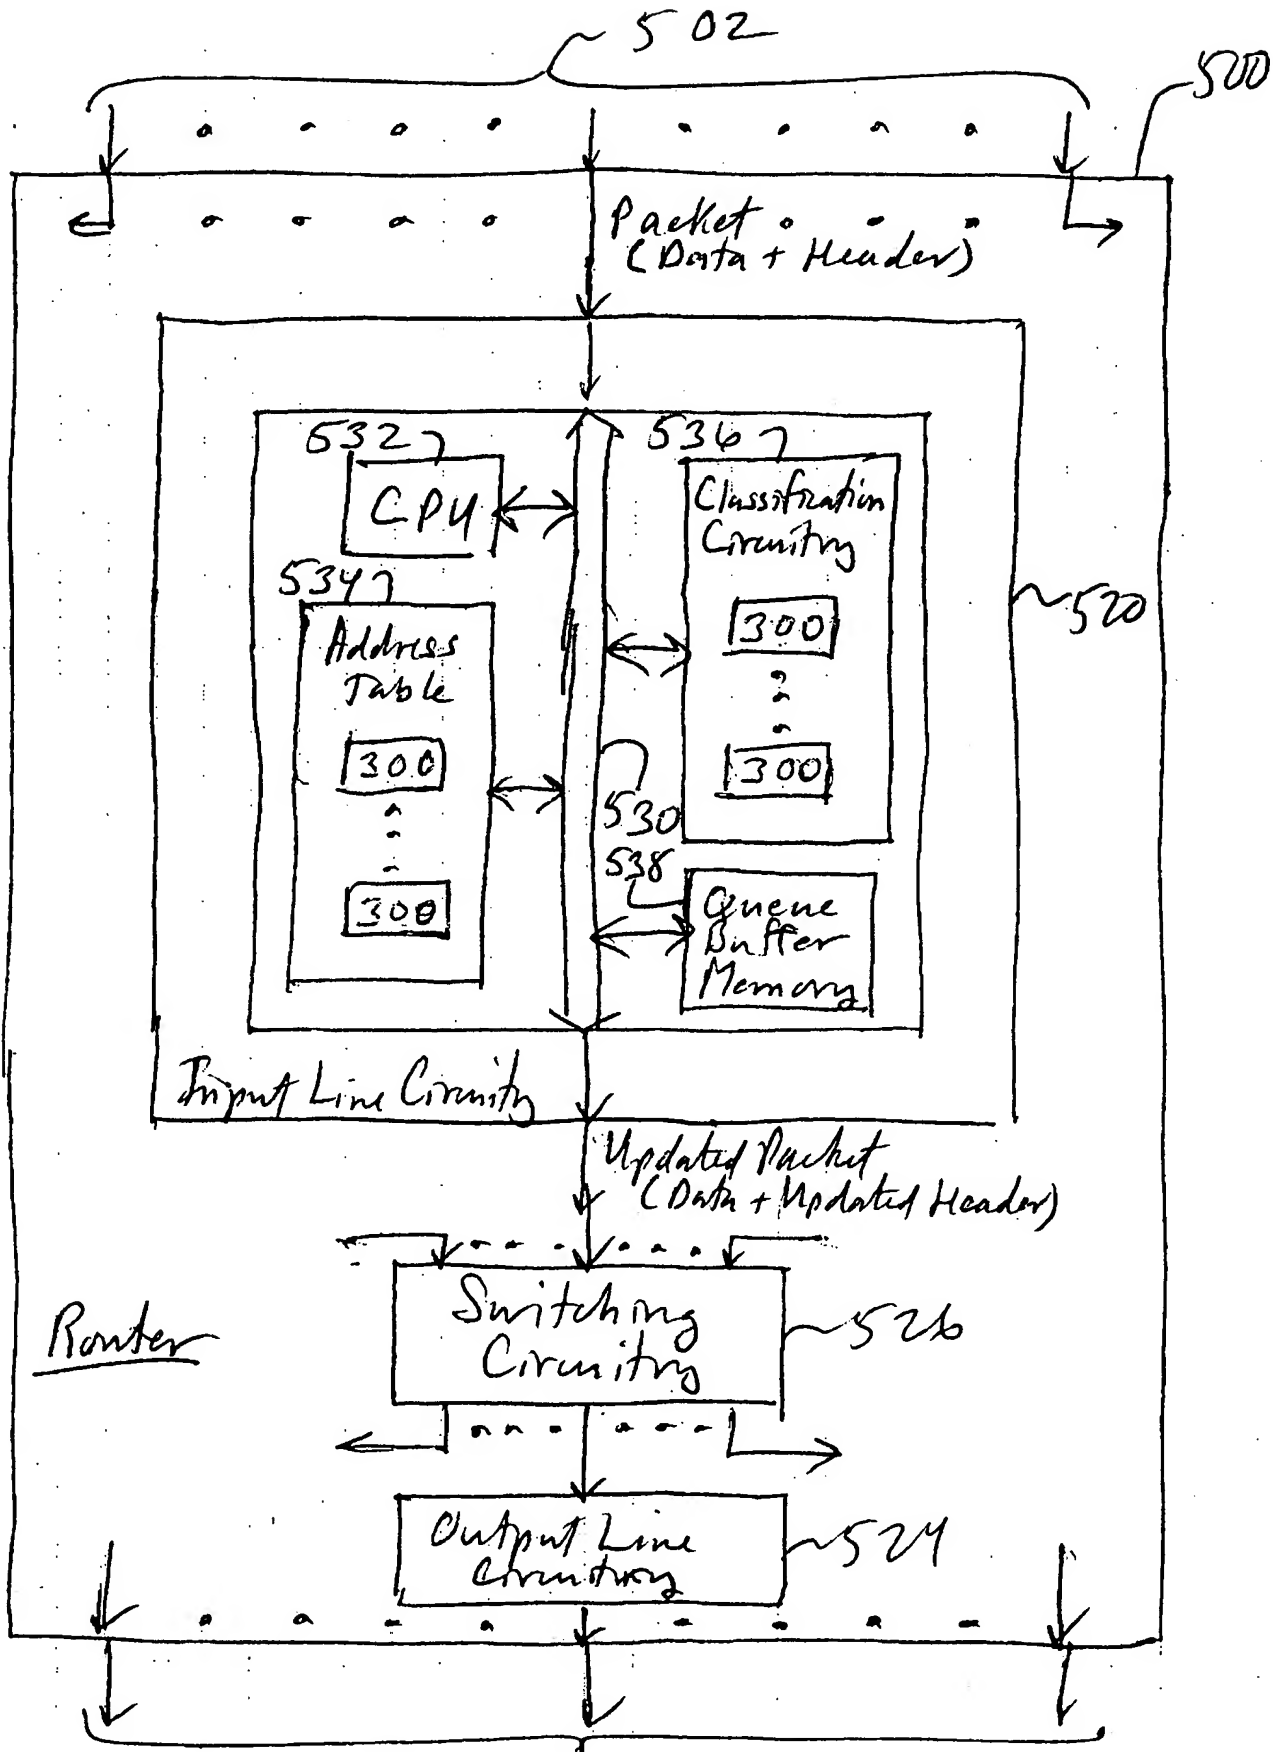 502
500
Packet
(Data + Header)
532
CPU
536
Classification
Circuitry
300
300
534
Address
Table
300
300
520
530
538
Queue
Buffer
Memory
Input Line Circuitry
Updated Packet
(Data + Updated Header)
Switching
Circuitry
526
Router
Output Line
Circuitry
524